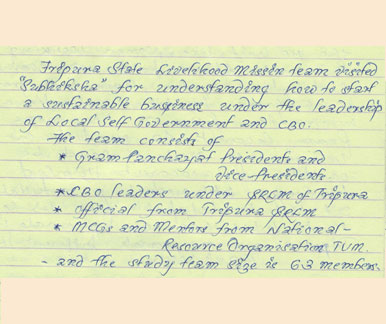 Tripura State Livelihood Missin team visited
"Subhiksha" for understanding how to start
a sustainable bussiness under the leadership
of Local Self Government and CBO.
The team consists of
* Gram Panchayat Presidents and
Vice-Presidents
* CBO leaders under SRLM of Tripura
* Official from Tripura SRLM
* MCGs and Mentors from National-
Resource Organisation TUM.
- and the study team size is 63 members.